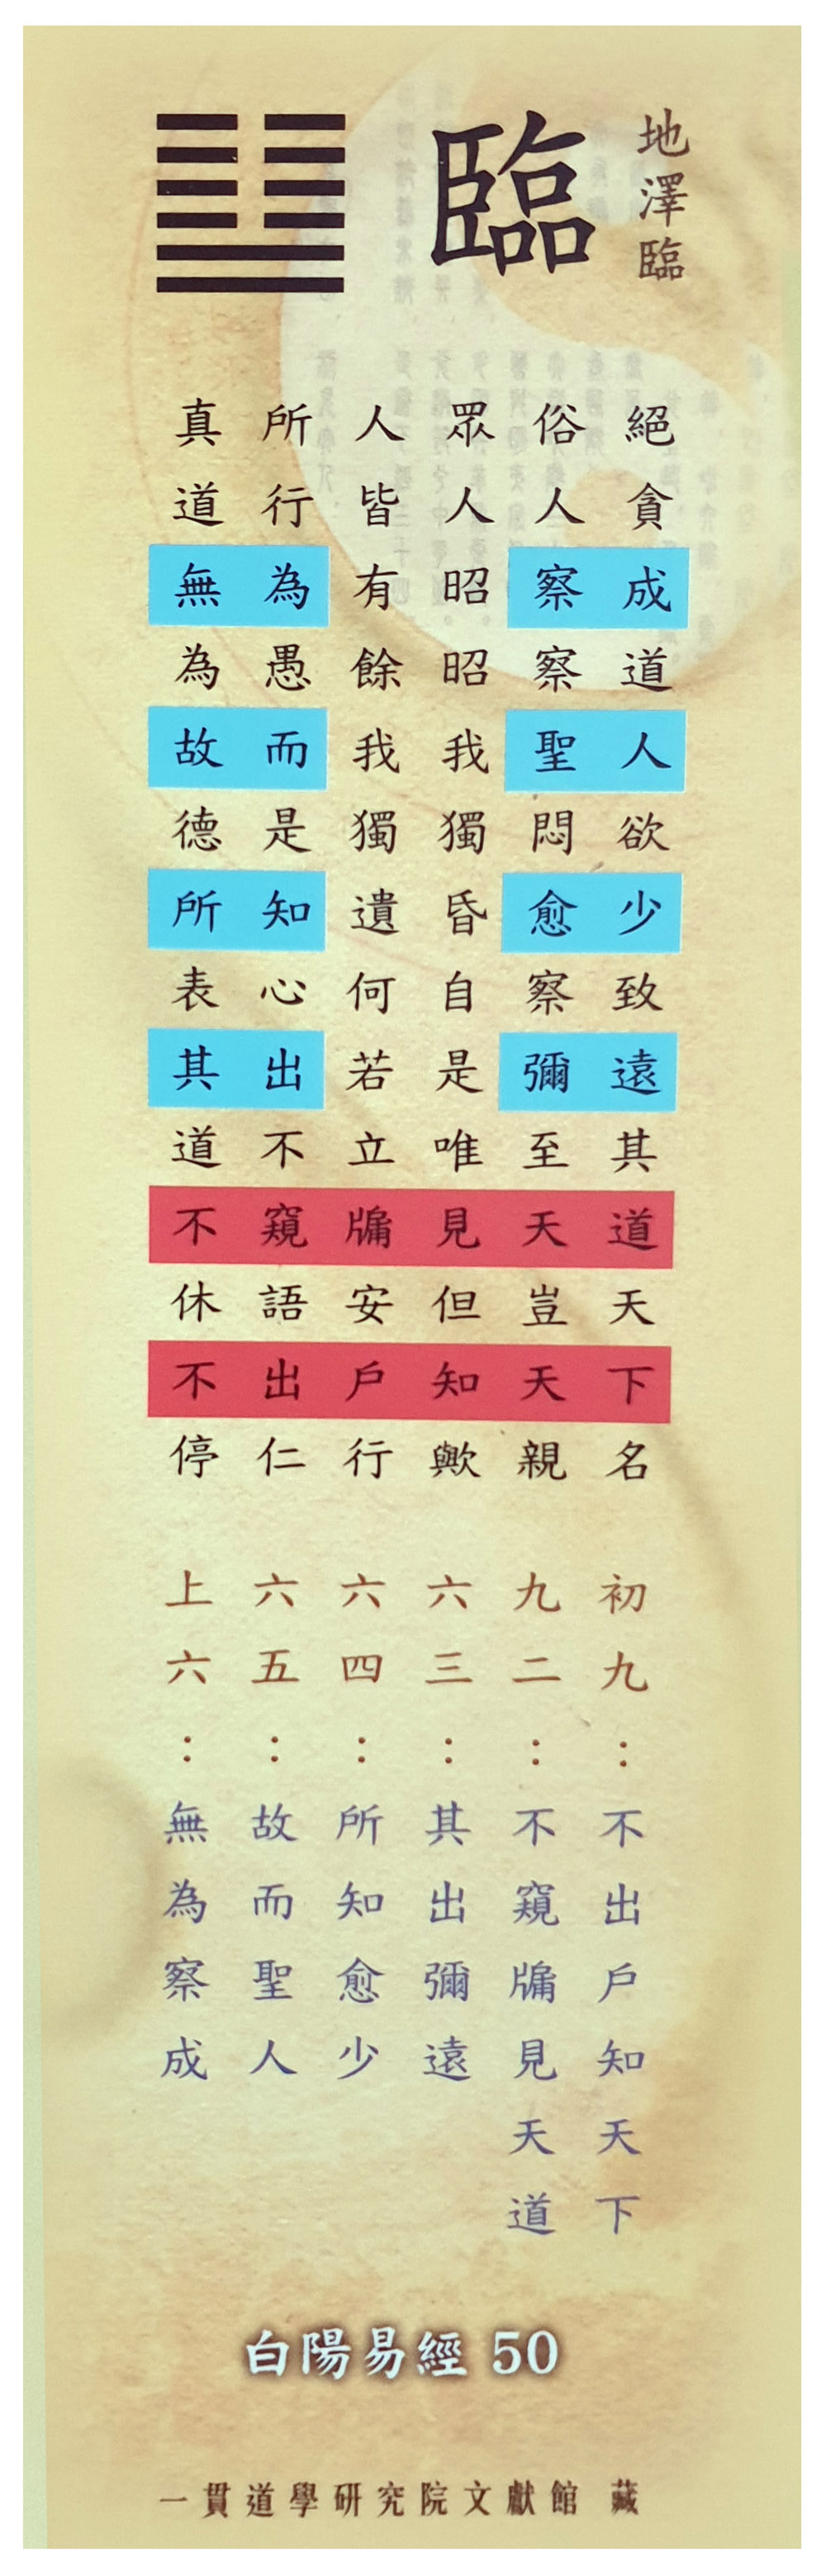 地澤臨
臨
絕貪成道人欲少致遠其道天下名
俗人察察聖悶愈察彌至天豈天親
眾人昭昭我獨昏自是唯見但知歟
人皆有餘我獨遺何若立牖安戶行
所行為愚而是知心出不窺語出仁
真道無為故德所表其道不休不停
初九：不出戶知天下
九二：不窺牖見天道
六三：其出彌遠
六四：所知愈少
六五：故而聖人
上六：無為察成
白陽易經 50
一貫道學研究院文獻館 藏